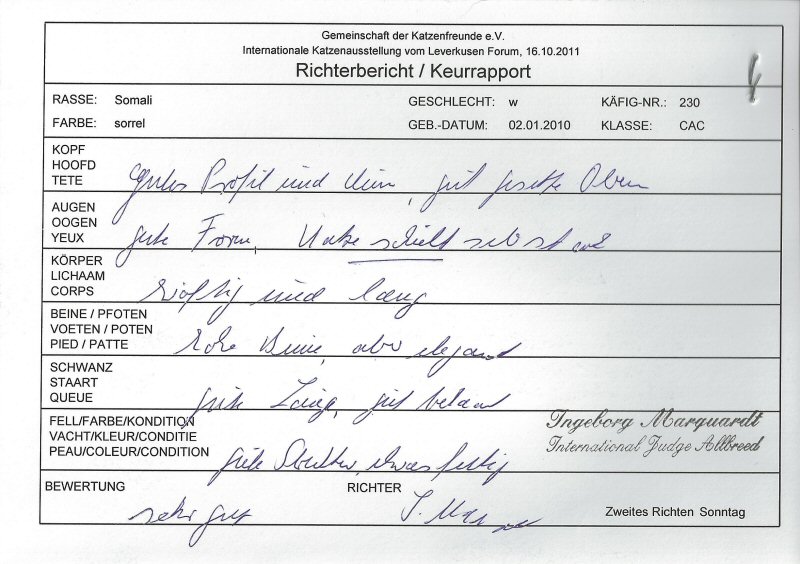 Gemeinschaft der Katzenfreunde e.V.
Internationale Katzenausstellung vom Leverkusen Forum, 16.10.2011
Richterbericht / Keurrapport
RASSE: Somali GESCHLECHT: w KÄFIG-NR.: 230
FARBE: sorrel GEB.-DATUM: 02.01.2010 KLASSE: CAC
KOPF
HOOFD
TETE
gutes Profil und Kinn, gut gesetzte Ohren
AUGEN
OOGEN
YEUX
gute Form, Katze schielt selbst
KÖRPER
LICHAAM
CORPS
kräftig und lang
BEINE / PFOTEN
VOETEN / POTEN
PIED / PATTE
hohe Beine, aber elegant
SCHWANZ
STAART
QUEUE
gute Länge, gut behaart
FELL/FARBE/KONDITION
VACHT/KLEUR/CONDITIE
PEAU/COLEUR/CONDITION
gute Struktur, etwas fettig
Ingeborg Marquardt
International Judge Allbreed
BEWERTUNG RICHTER
sehr gut I. Marquardt
Zweites Richten Sonntag